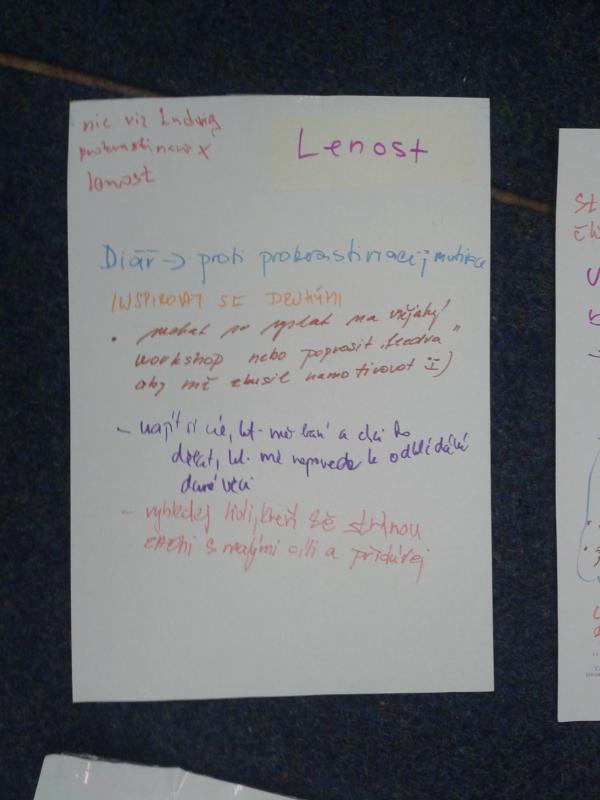 nic viz Ludwig
prokrastinace x
lenost
Lenost
Diář -> proti prokrastinaci; motivace
INSPIROVAT SE DRUHÝMI
• nechat se vyslat na nějaký
workshop nebo poprosit „
aby mě zkusil namotivovat :)
- najít si cíl, kt. mě baví a chci ho
dělat, kt. mě nepovede k odkládání
dané věci
- vyhledej lidi, kteří tě strhnou
začni s malými cíli a přidávej
St